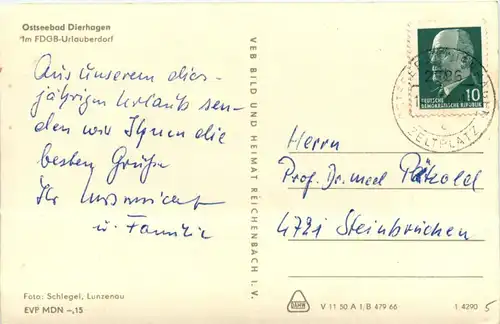 Ostseebad Dierhagen
Im FDGB-Urlauberdorf
Aus unserem dies-
jährigen Urlaub sen-
den wir Ihnen die
besten Grüße
Ihr
u. Familie
Foto: Schlegel, Lunzenau
EVP MDN -,15
VEB BILD UND HEIMAT REICHENBACH I. V.
10
DEUTSCHE
DEMOKRATISCHE REPUBLIK
ZELTPLATZ
Herrn
Prof. Dr. med. Pätzold
4721 Steinbrücken
V 11 50 A 1/B 479 66
1.4290
5